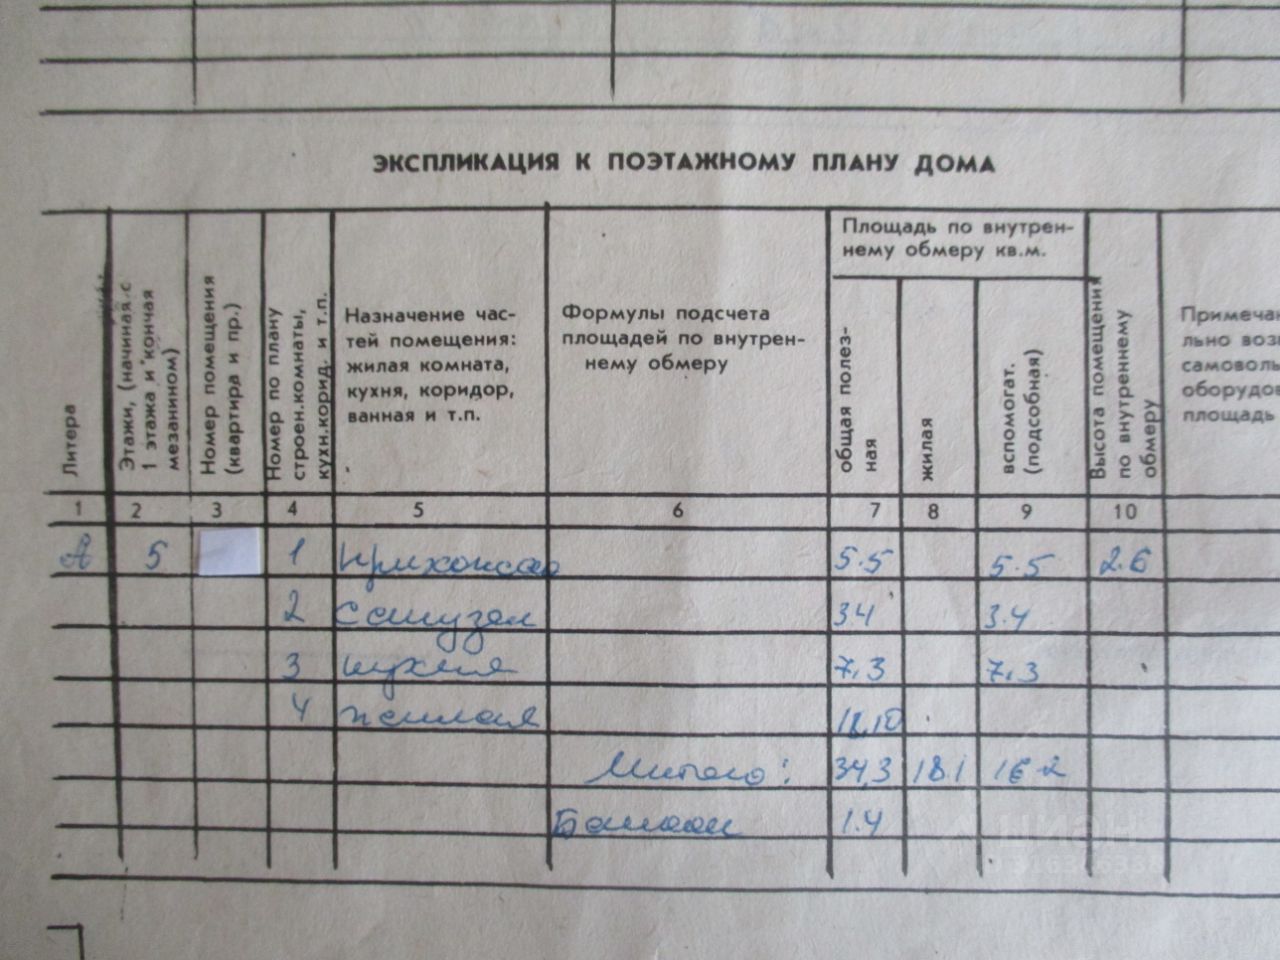 ЭКСПЛИКАЦИЯ К ПОЭТАЖНОМУ ПЛАНУ ДОМА
Литера
Этажи, (начиная с
1 этажа и кончая
мезанином)
Номер помещения
(квартира и пр.)
Номер по плану
строен.комнаты,
кухн.корид. и т.п.
Назначение час-
тей помещения:
жилая комната,
кухня, коридор,
ванная и т.п.
Формулы подсчета
площадей по внутрен-
нему обмеру
Площадь по внутрен-
нему обмеру кв.м.
общая полез-
ная
жилая
вспомогат.
(подсобная)
Высота помещения
по внутреннему
обмеру
Примечан
льно возв
самоволь
оборудов
площадь
1 2 3 4 5 6 7 8 9 10
А 5 1 прихожая 5.5 5.5 2.6
2 санузел 3.4 3.4
3 кухня 7,3 7,3
4 жилая 18,10
Итого: 34,3 18.1 16.2
Балкон 1.4